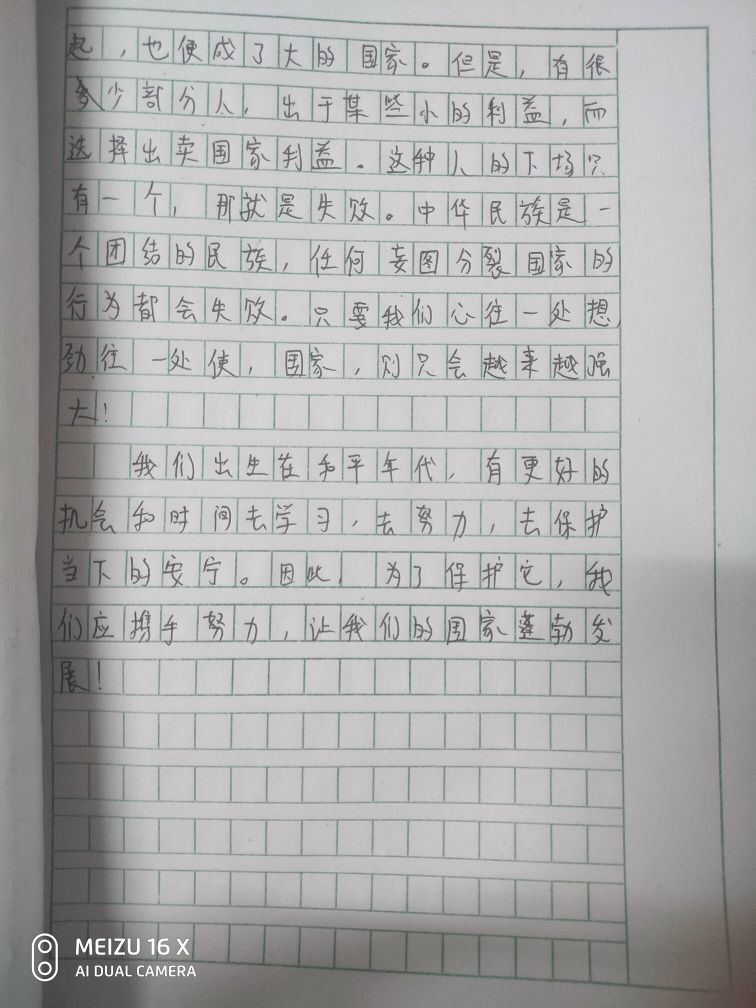 起，也便成了大的国家。但是，有很
多少部分人，出于某些小的利益，而
选择出卖国家利益。这种人的下场只
有一个，那就是失败。中华民族是一
个团结的民族，任何妄图分裂国家的
行为都会失败。只要我们心往一处想，
劲往一处使，国家，则只会越来越强
大！
我们出生在和平年代，有更好的
机会和时间去学习，去努力，去保护
当下的安宁。因此，为了保护它，我
们应携手努力，让我们的国家蓬勃发
展！
MEIZU 16 X
AI DUAL CAMERA